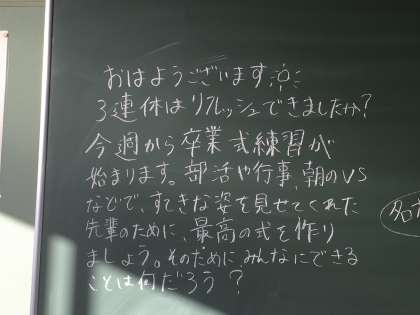 おはようございます
3連休はリフレッシュできましたか?
今週から卒業式練習が
始まります。部活や行事、朝のVS
などで、すてきな姿を見せてくれた
先輩のために、最高の式を作り
ましょう。そのために、みんなにできる
ことは何だろう?